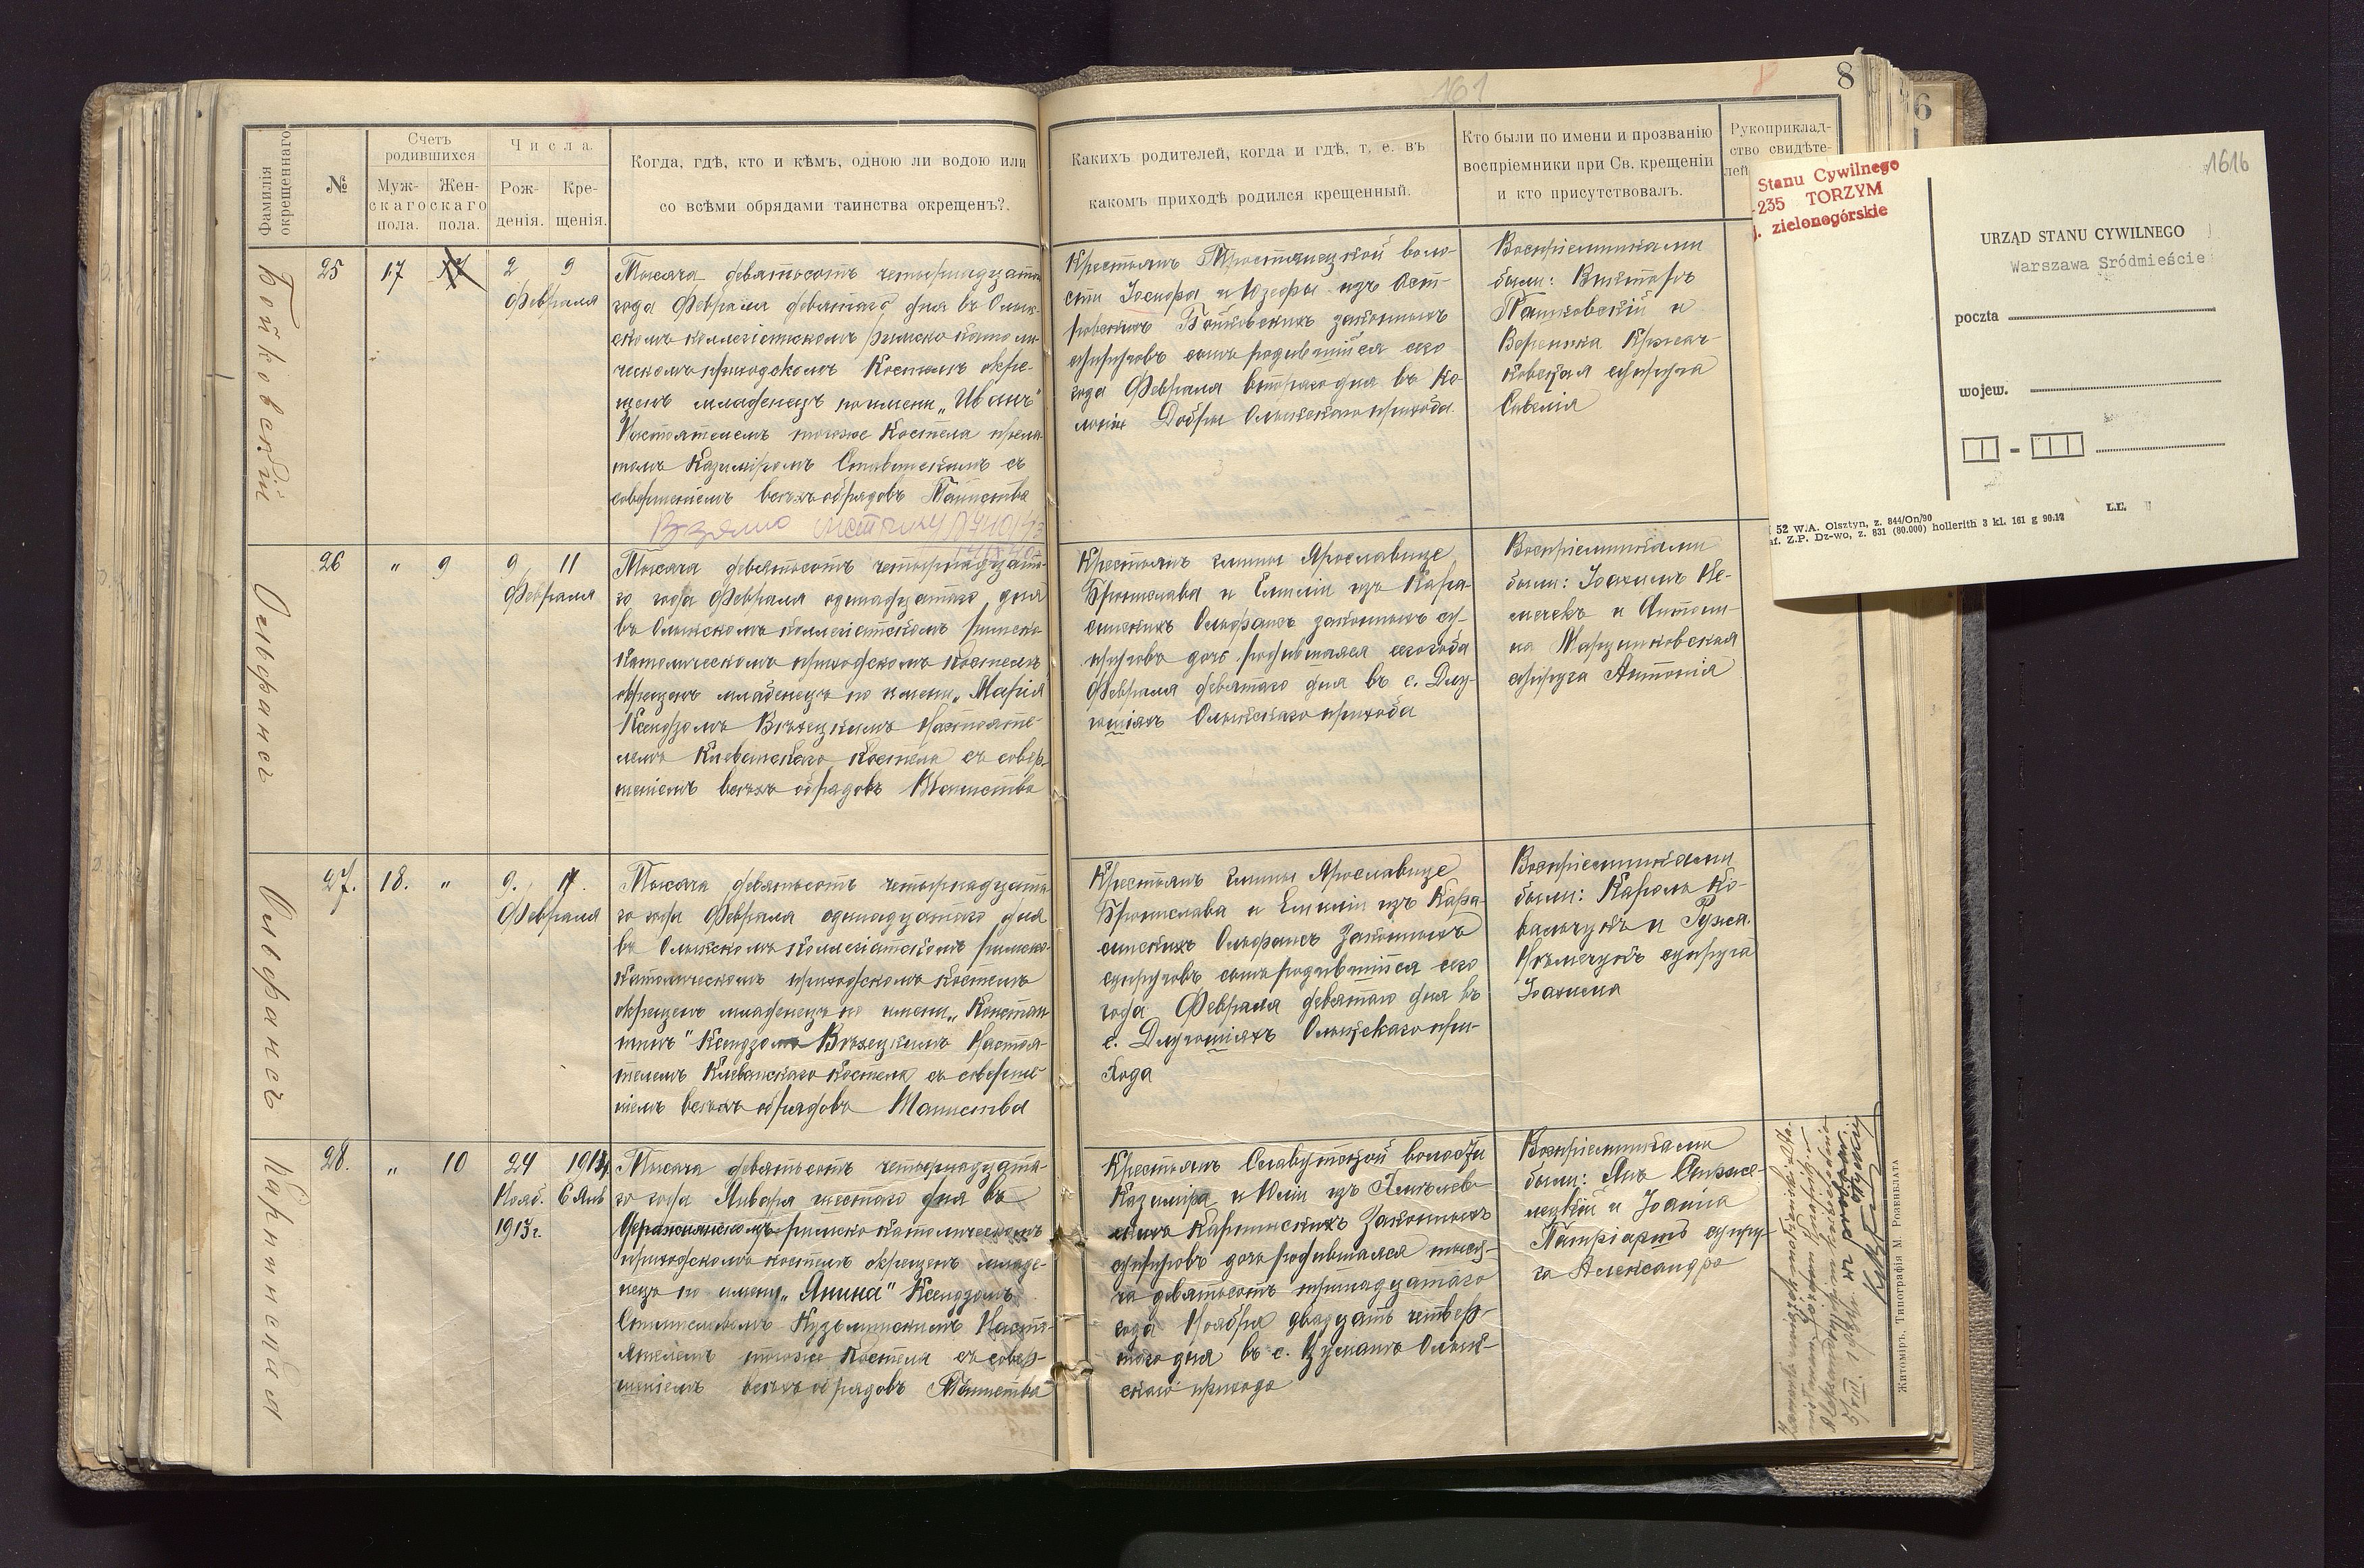 161
8
8
6
Фамилія окрещеннаго
№
Счетъ родившихся
Муж-скаго пола.
Жен-скаго пола.
Числа
Рож-денія.
Кре-щенія.
Когда, гдѣ, кто и кѣмъ, одною ли водою или
со всѣми обрядами таинства окрещенъ?
Какихъ родителей, когда и гдѣ, т. е. въ
какомъ приходѣ родился крещенный.
Кто были по имени и прозванію
воспріемники при Св. крещеніи
и кто присутствовалъ.
Рукоприклад-
ство свидѣте-
лей
Бойковскій
25
17
2 9
Февраля
Тысяча девятьсотъ четырнадцатаго
года Февраля девятаго дня въ Олык-
скомъ коллегіатскомъ римско католи-
ческомъ приходскомъ Костелѣ окре-
щенъ младенецъ по имени „Иванъ"
Настоятелемъ тогоже Костела прела-
томъ Казиміромъ съ
совершеніемъ всѣхъ обрядовъ Таинства
Крестьянъ воло-
сти Іосифа и Юзефы изъ Ост-
ровскихъ законныхъ
супруговъ сынъ родившійся сего
года Февраля втораго дня въ Ко-
лоніи Добры Олыкскаго прихода
Воспріемниками
были: Викторъ
и
супруга
26
" 9
9 11
Февраля
Олефансъ
Тысяча девятьсотъ четырнадцата-
го года Февраля одинадцатаго дня
въ Олыкскомъ коллегіатскомъ римско
Католическомъ приходскомъ костелѣ
окрещенъ младенецъ по имени „Марія"
Ксендзомъ Настояте-
лемъ Клеванскаго Костела съ совер-
шеніемъ всѣхъ обрядовъ Таинства
Крестьянъ гмины Ярославице
Бронислава и Емиліи изъ Кара-
синскихъ Ольфансъ законныхъ су-
пруговъ дочь родившаяся сего года
Февраля девятаго дня въ с. Длу-
гошіяхъ Олыкскаго прихода
Воспріемниками
были: Іоахимъ Не-
мечекъ и Антони-
на Марцинковская
супруга Антонія
27.
18. "
9. 11.
Февраля
Олефансъ
Тысяча девятьсотъ четырнадцата
го года Февраля одинадцатаго дня
въ Олыкскомъ коллегіатскомъ римско-
Католическомъ приходскомъ костелѣ
окрещенъ младенецъ по имени „Констан
тинъ" Ксендзомъ Настоя-
телемъ Клеванскаго Костела съ соверше-
ніемъ всѣхъ обрядовъ Таинства
Крестьянъ гмины Ярославице
Бронислава и Емиліи изъ Кара-
синскихъ Ольфансъ Законныхъ
супруговъ сынъ родившійся сего
года Февраля девятаго дня въ
с. Длугошіяхъ Олыкскаго при-
хода
Воспріемниками
были: Кароль Ко-
вальчукъ и
супруга
Іоахима
28.
" 10
24 1914
Нояб. 6 Янв
1913г.
Карпинская
Тысяча девятьсотъ четырнадцата-
го года Января шестаго дня въ
римско католическомъ
приходскомъ костелѣ окрещенъ младе-
нецъ по имени „Янина" Ксендзомъ
Станиславомъ Кузьминскимъ Насто-
ятелемъ тогоже Костела съ совер-
шеніемъ всѣхъ обрядовъ Таинства
Крестьянъ Славутской волости
Казиміра и Юліи изъ
Карпинскихъ Законныхъ
супруговъ дочь родившаяся тыся-
ча девятьсотъ тринадцатаго
года Ноября двадцать четвер-
таго дня въ с. Цумань Олык-
скаго прихода
Воспріемниками
были: Янъ
и Іоанна
Патріархъ супру-
га Александра
Житоміръ, Типографія М. Розенблата
Stanu Cywilnego
-235 TORZYM
j. zielonogórskie
1616
URZĄD STANU CYWILNEGO
Warszawa Sródmieście
poczta
wojew.
52 W.A. Olsztyn, z. 844/On/90
af. Z.P. Dz-wo, z. 831 (80.000) hollerith 3 kl. 161 g 90.12